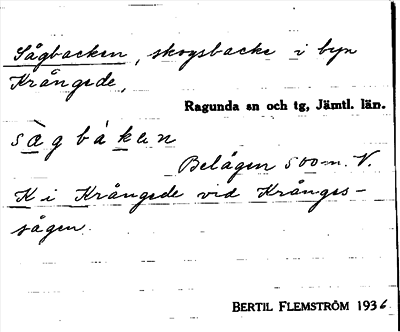 Sågbacken, skogsbacke i byn
Krångede,
Ragunda sn och tg, Jämtl. län.
sægbàken
Belägen 500 m. V.
K i Krångede vid Krånges-
sågen.
BERTIL FLEMSTRÖM 1936.